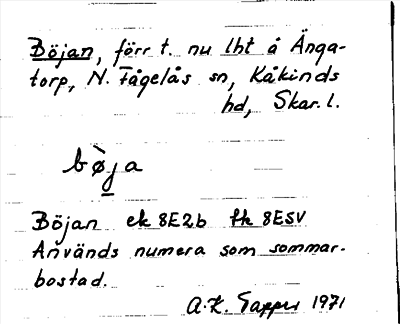 Böjan, förr t. nu lht å Änga-
torp, N. Fågelås sn, Kåkinds
hd, Skar. l.
bø̀ja
Böjan ek 8E2b fk 8E5V
Används numera som sommar-
bostad.
A.K. 1971